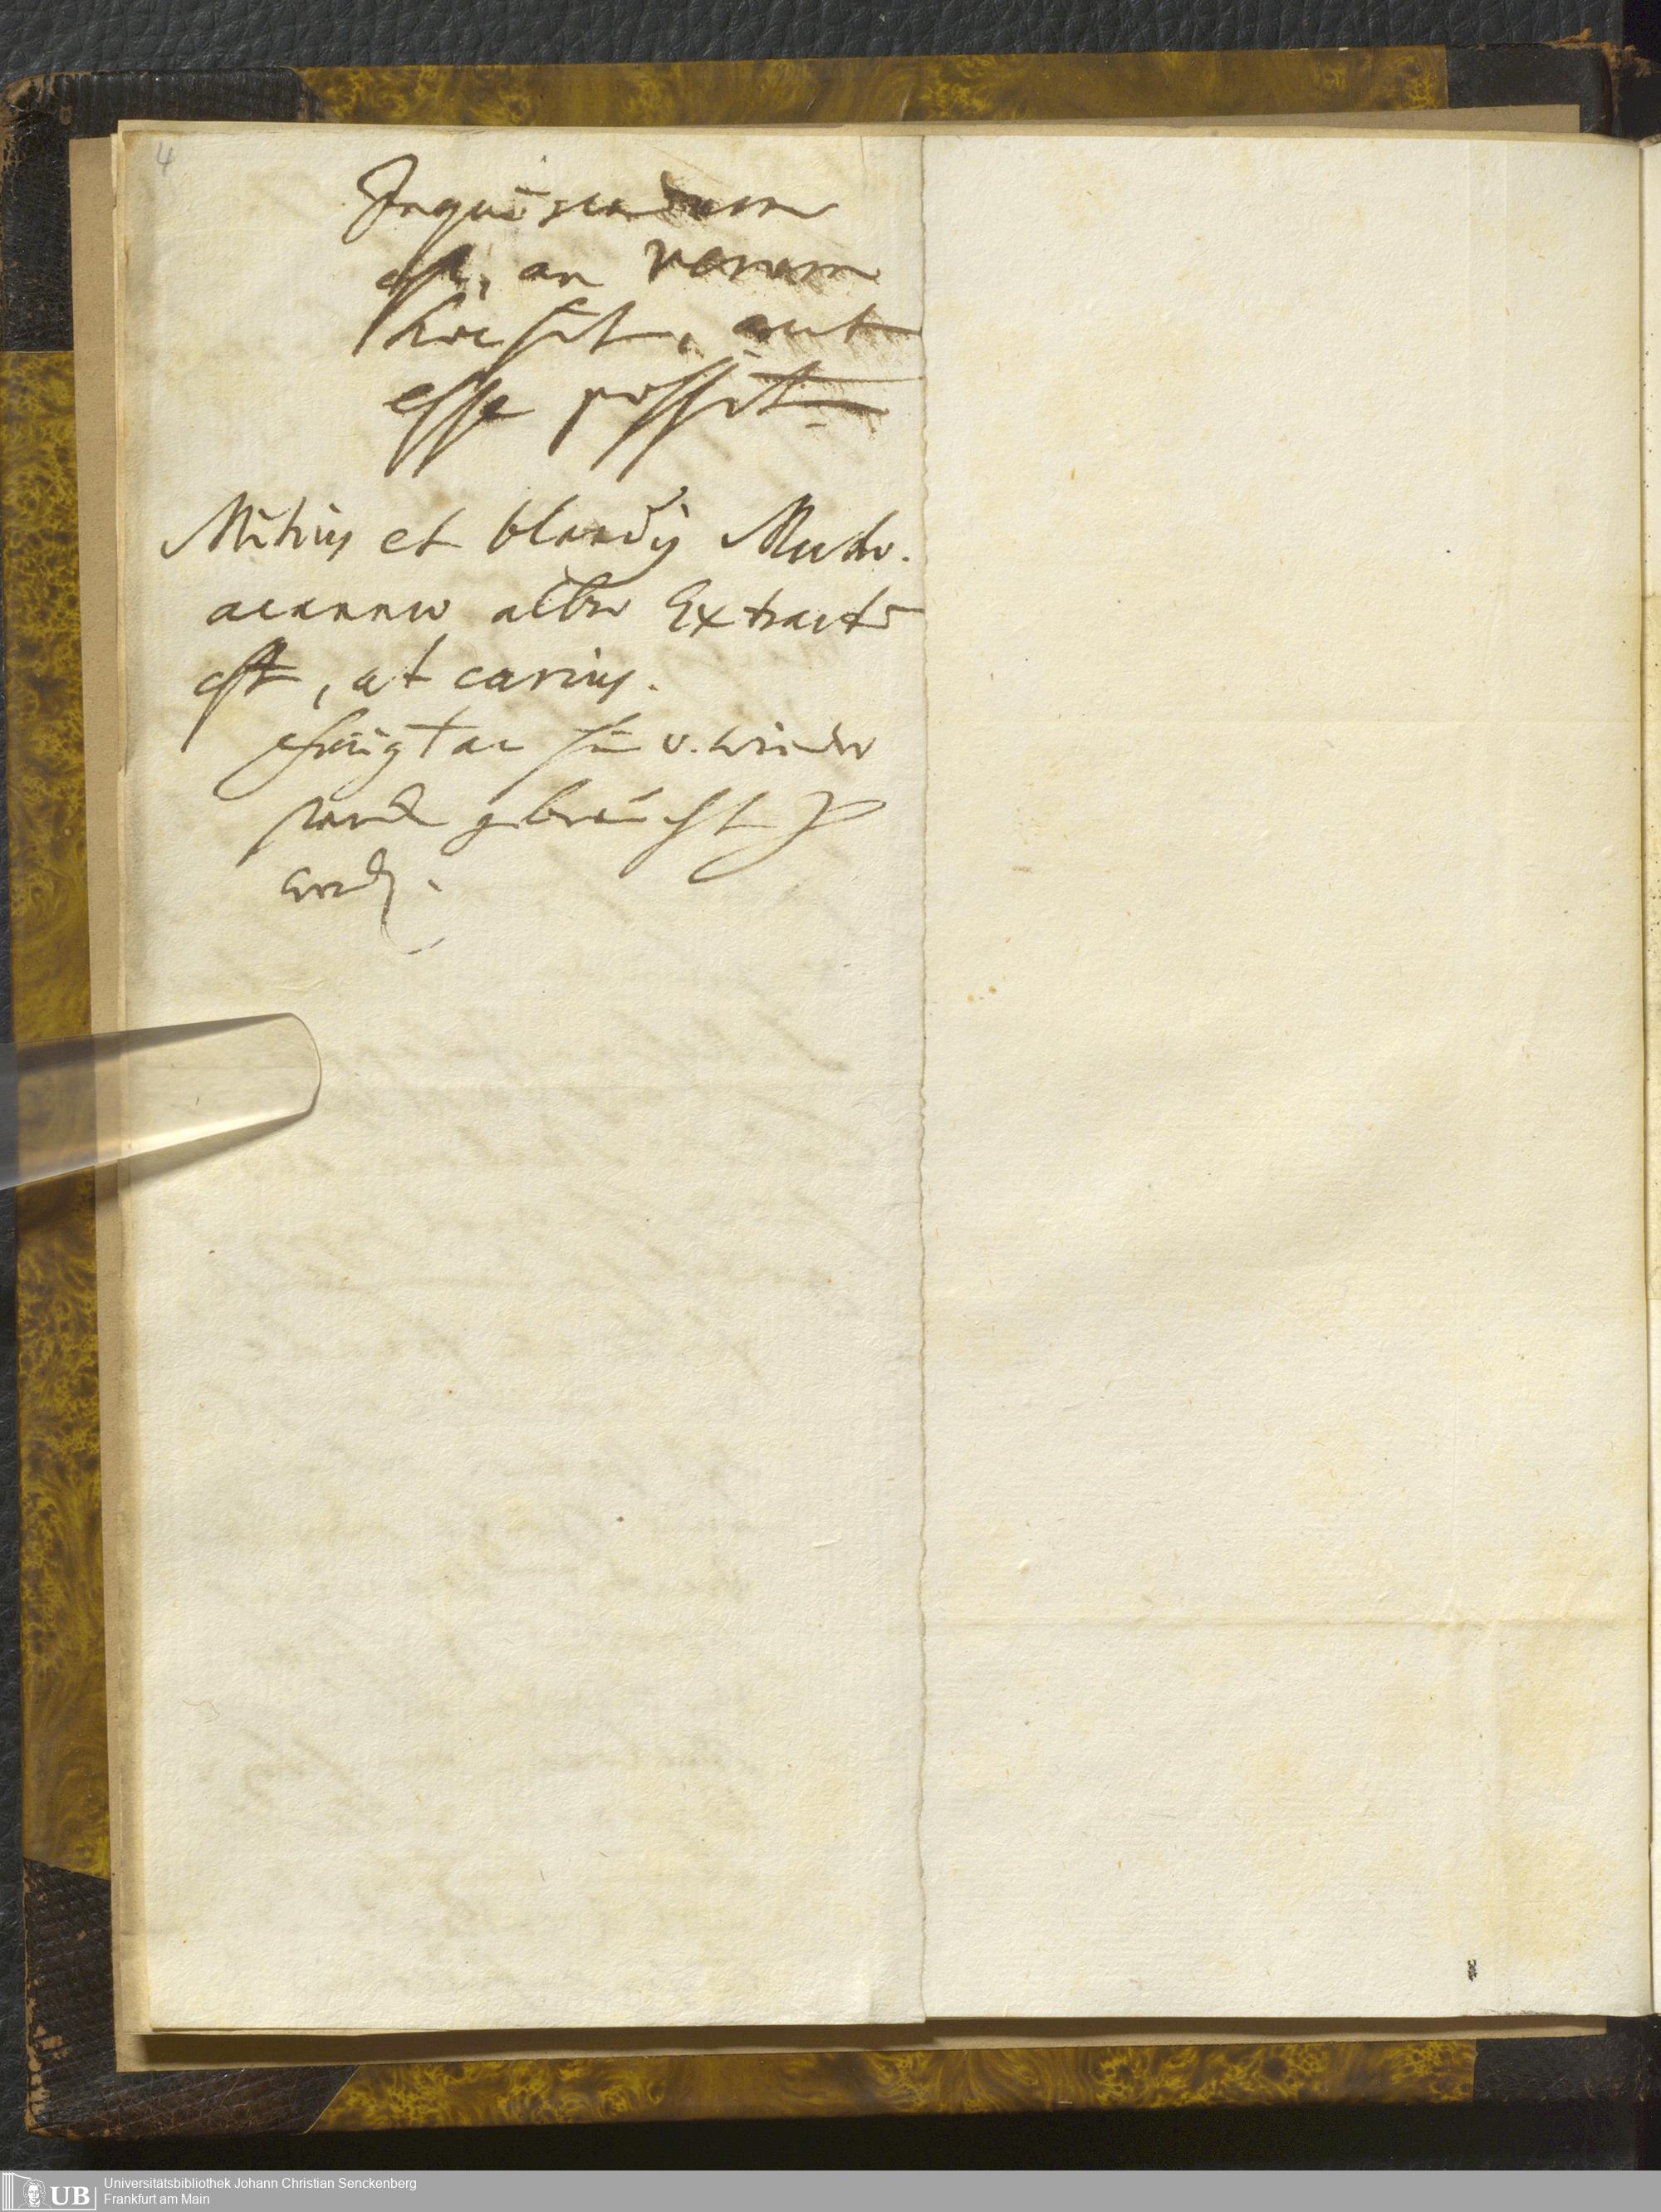 4
Inquirendum
est, an verum
hoc sit, aut
esse possit
Mitius et blandius Mecho.
acanna albo Extracto
est, at carius.
hin u. wieder
gebraucht
werden.
UB Universitätsbibliothek Johann Christian Senckenberg
Frankfurt am Main